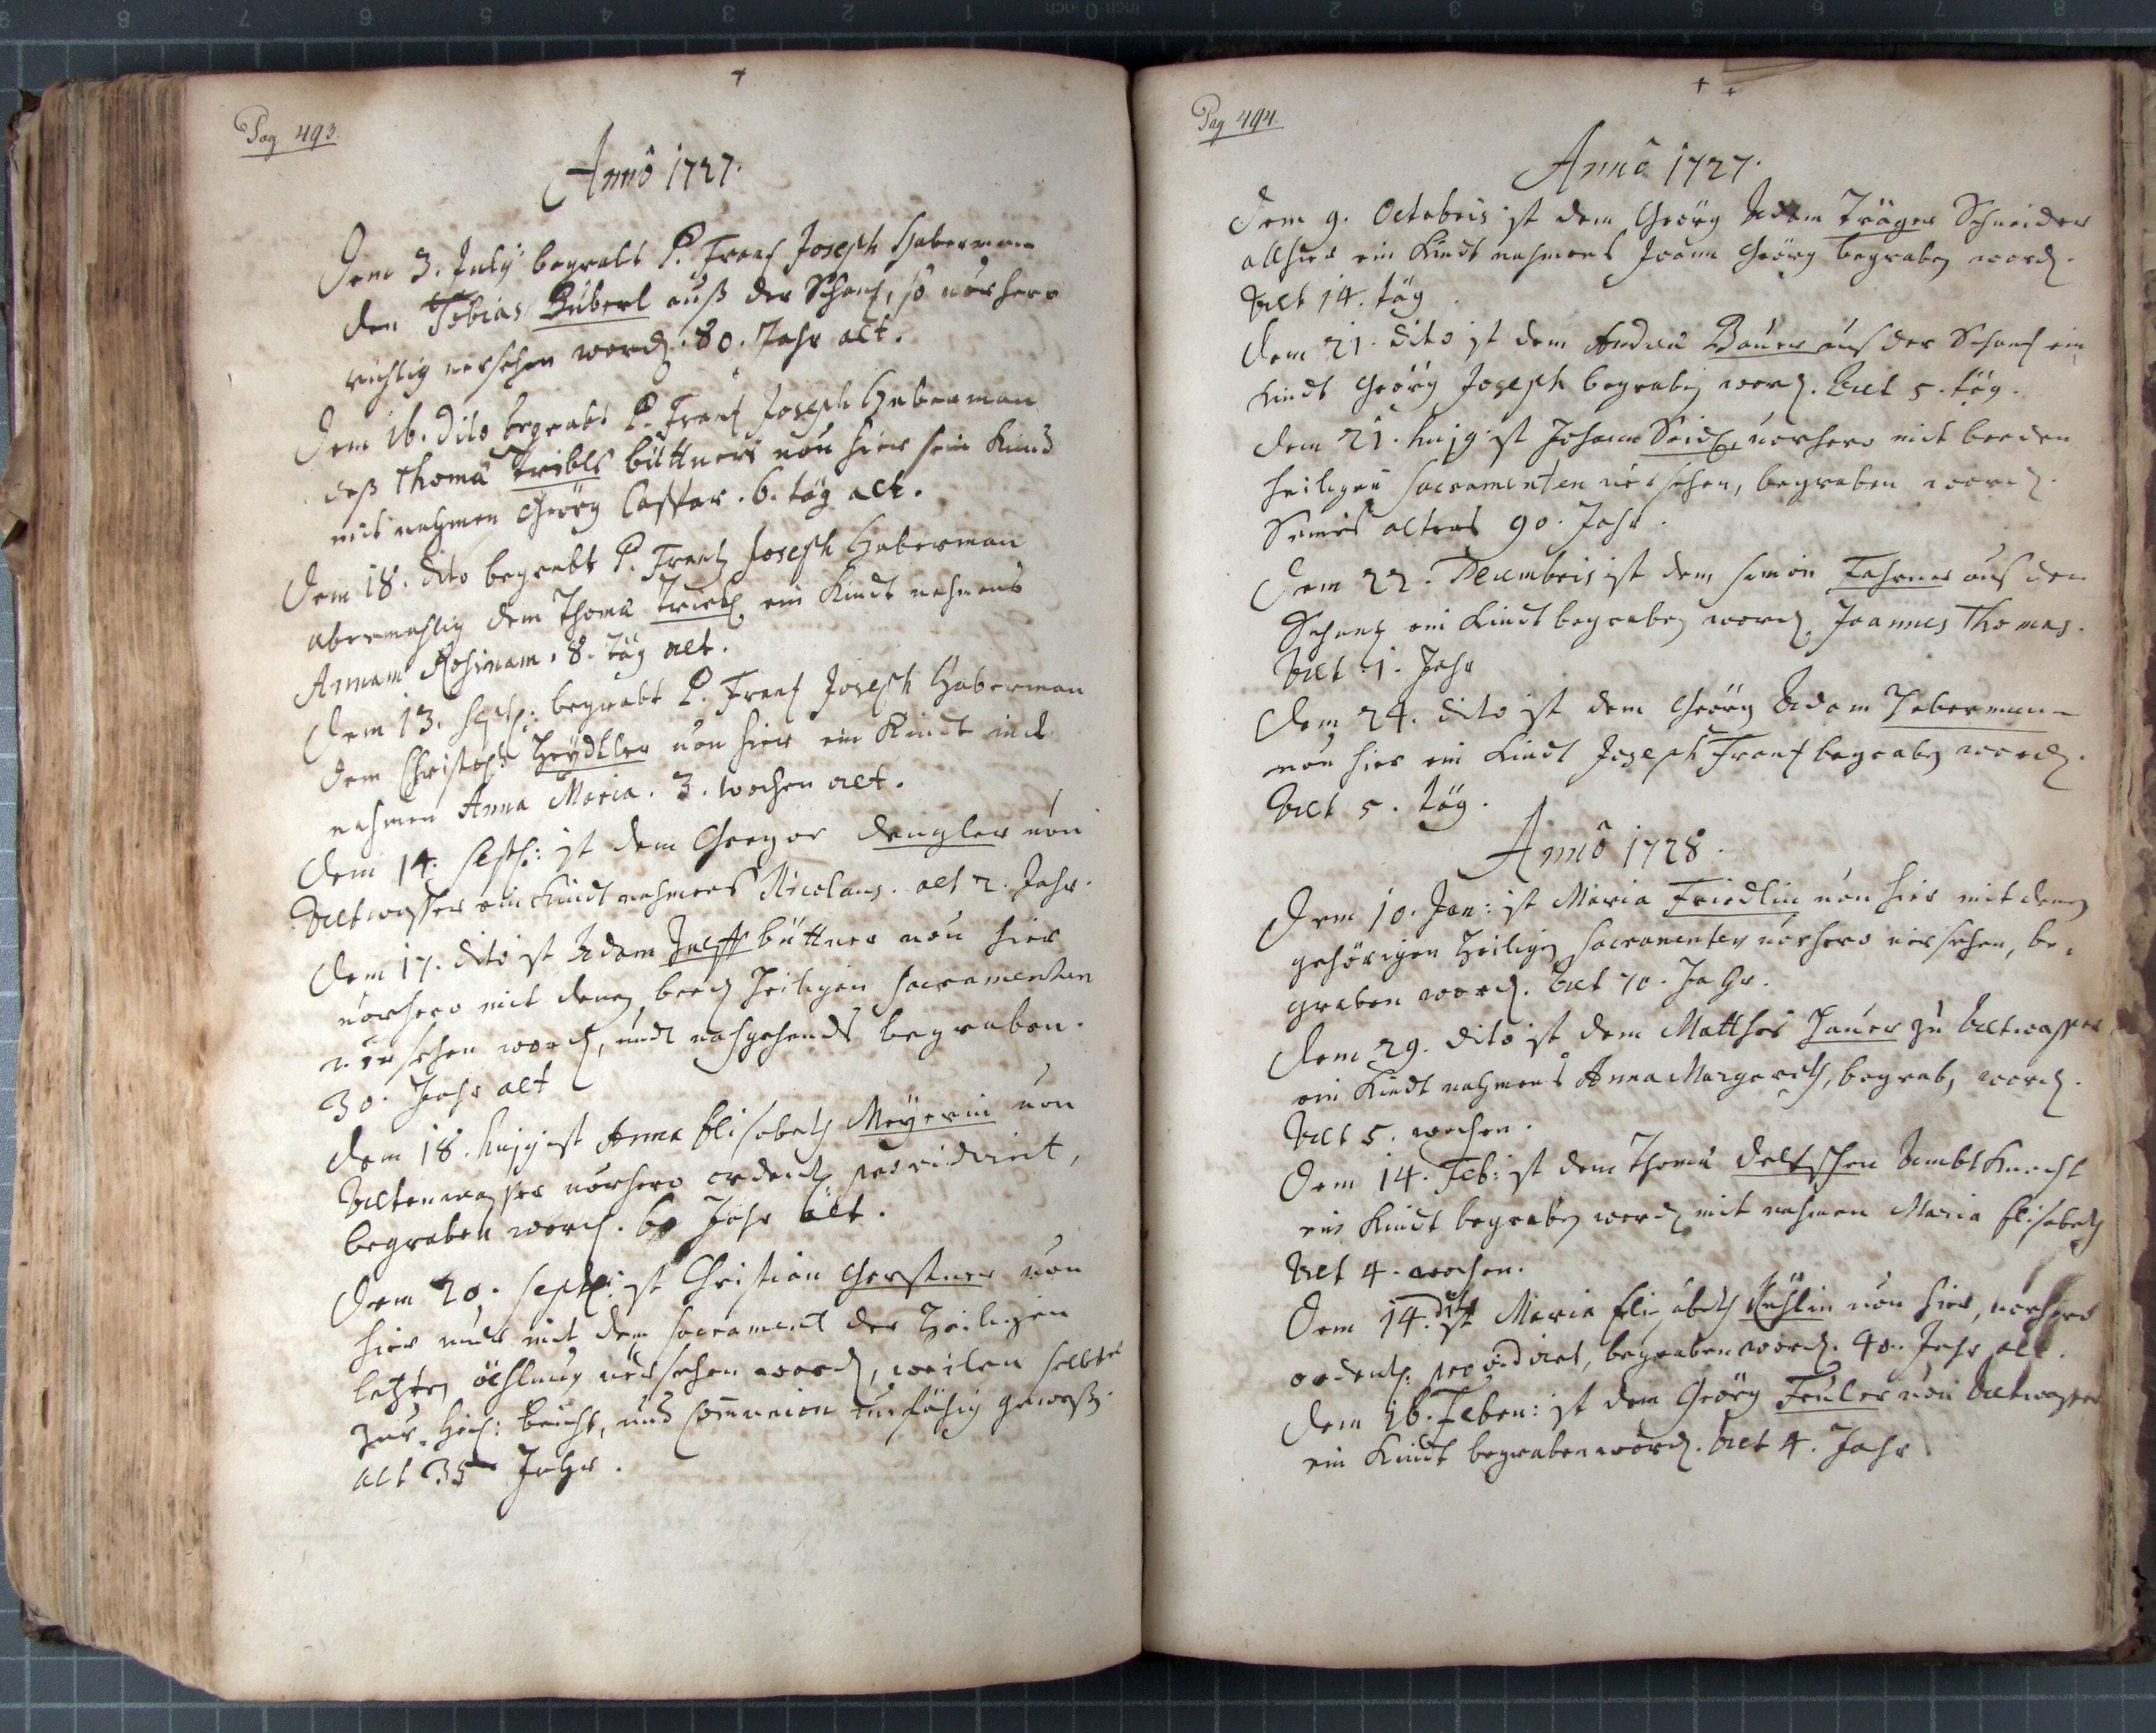 Pag 493.
Anno 1727.
Dem 3. July begrabt P. Frantz Joseph Haberman
den Tobias Büberl auß der Schantz, so vorhero
richtig versehen word. 80. Jahr alt.
Dem 16. dito begrabt P. Frantz Joseph Haberman
deß Thoma Tribls büttners von hier sein Kind
mit nahmen Georg Casspar. 6. täg alt.
Dem 18. dito begrabt P. Frantz Joseph Haberman
abermahlig dem Thoma ein Kindt nahmens
Annam Rosinam. 8. täg alt.
Dem 13. Sept: begrabt P. Frantz Joseph Haberman
dem Christoph Heydtler von hier ein Kindt mit
nahmen Anna Maria. 3. wochen alt.
Dem 14. Sept: ist dem Gregor Dengler von
Altwasser ein Kindt nahmens Nicolaus. alt 2. Jahr.
Dem 17. dito ist Adam büttner von hier
vorhero mit denen beed heiligen Sacramenten
versehen word, undt nachgehends begraben.
30. Jahr alt
Dem 18. hujus ist Anna Elisabeth Meÿerin von
Altenwasser vorhero ordentl. providirt,
begraben word. Jahr alt.
Dem 20. Sept: ist Christian Gerstner von
hier nur mit dem Sacrament der Heiligen
letzten öhlung versehen word, weilen selbte
zur Heil: beicht, und Communion unfähig gewest.
alt 35 Jahr.
Pag 494.
Anno 1727.
Dem 9. Octobris ist dem Georg Adam Träger Schneider
allhier ein Kindt nahmens Joann Georg begraben word.
Alt 14. täg.
Dem 21. dito ist dem Andrea Bauer aus der Schantz ein
Kindt Georg Joseph begraben word. Alt 5. täg.
Dem 21. hujus ist Johann Seidl, vorhero mit beeden
heiligen Sacramenten versehen, begraben word.
Seines alters 90. Jahr.
Dem 22. Decembris ist dem Simon Fahrner aus der
Schantz ein Kindt begraben word. Joannes Thomas.
Alt 1. Jahr
Dem 24. dito ist dem Georg Adam Haberman
von hier ein Kindt Joseph Frantz begraben word.
Alt 5. täg.
Anno 1728.
Dem 10. Jan: ist Maria Friedlin von hier mit denen
gehörigen Heiligen Sacramenten vorhero versehen, be,
graben word. Alt 70. Jahr.
Dem 29. dito ist dem Matthes Hauer zu Altwasser
ein Kindt nahmens Anna Margareth, begraben word.
Alt 5. wochen.
Dem 14. Feb: ist dem Thoma Deltschen Ambt Knecht
ein Kindt begraben word mit nahmen Maria Elisabeth
Alt 4. wochen.
Dem 14. dito ist Maria Elisabeth von hier, vorhero
ordentl: providirt, begraben word. 40. Jahr alt.
Dem 16. Feben: ist dem Georg Feuler von Altwasser
ein Kindt begraben word. Alt 4. Jahr